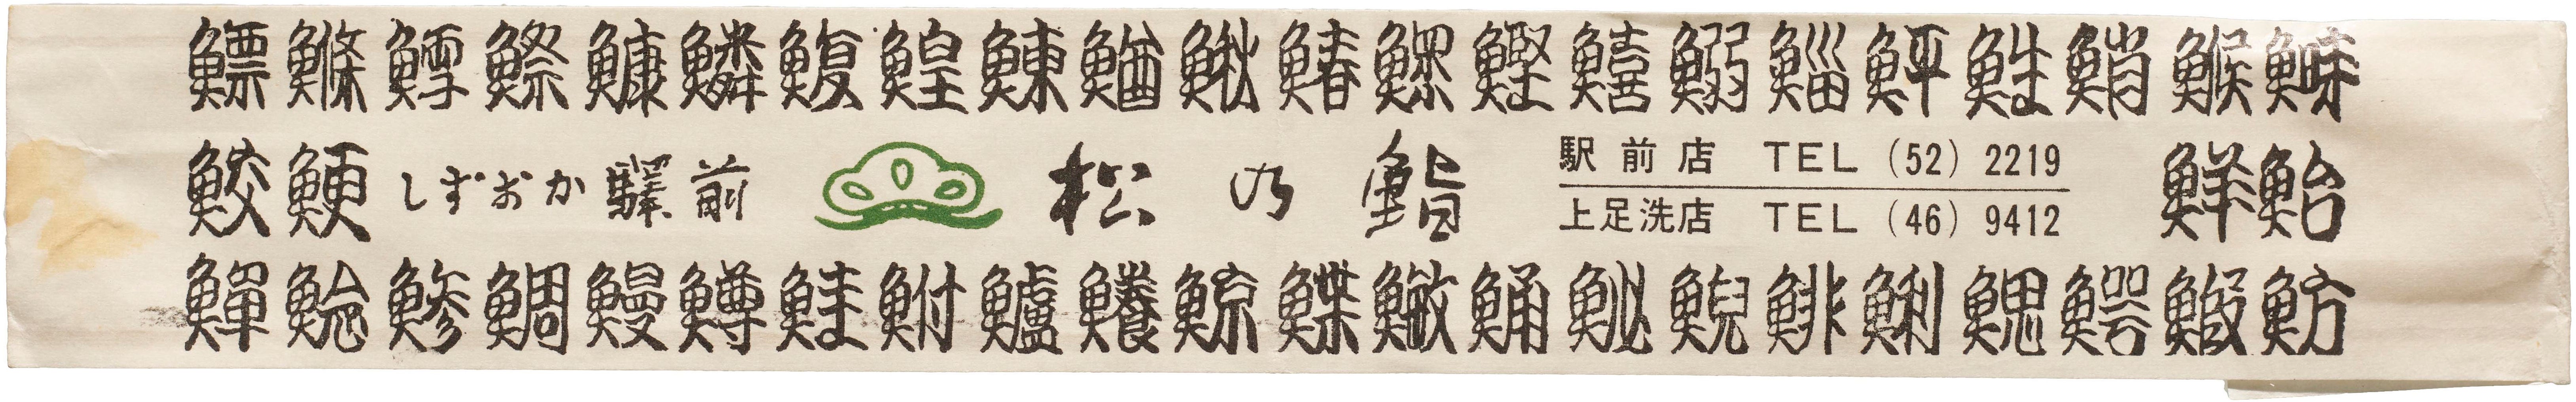 鰾鰷鱈鰶鱇鱗鰒鰉鰊鰌鰍鰆鰥鰹鱚鰯鯔鮃鮏鮹鯸
鮫鯁 しずおか驛前 松乃鮨
駅前店 TEL (52) 2219
上足洗店 TEL (46) 9412
鮮鮐
鱓鯰鰺鯛鰻鱒鮭鮒鱸鱶鯨鰈鰵鯒鮅鯢鯡鯏鰓鰐鰕魴